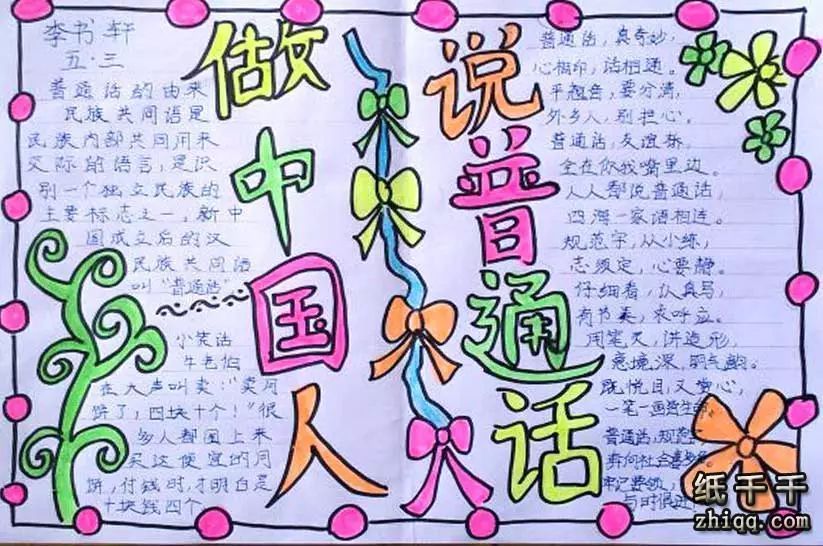 李书轩
五·三
做中国人
说普通话
普通话的由来
民族共同语是
民族内部共同用来
交际的语言，是识
别一个独立民族的
主要标志之一，新中
国成立后的汉
民族共同话
叫“普通话”
小笑话
牛老伯
在大声叫卖：“卖月
饼了，四块十个！”很
多人都围上来
买这便宜的月
饼，付钱时，才明白是
十块钱四个
普通话，真奇妙，
心相印，话相通。
平翘音，要分清，
外乡人，别担心。
普通话，友谊桥，
全在你我嘴里边。
人人都说普通话，
四海一家语相连。
规范字，从小练，
志须定，心要静。
仔细看，认真写，
有节奏，求呼应。
用笔灵，讲造形，
意境深，
既悦目，又赏心，
一笔一画
普通话，规范
奔向社会
与时俱进
纸千千
zhiqq.com